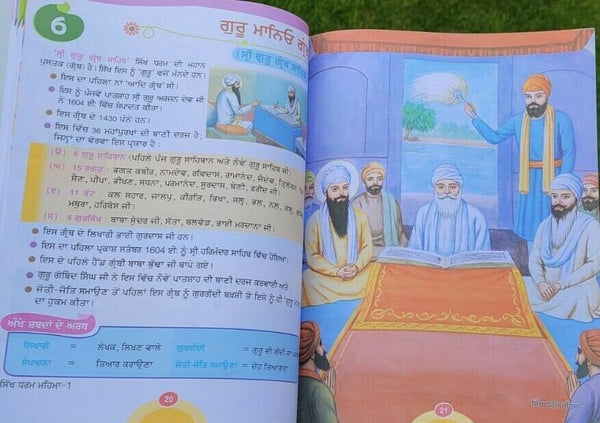 6
ਗੁਰੂ ਮਾਨਿਓ
(ਸ੍ਰੀ ਗੁਰੂ ਗ੍ਰੰਥ ਸਾਹਿਬ
'ਸ੍ਰੀ ਗੁਰੂ ਗ੍ਰੰਥ ਸਾਹਿਬ' ਸਿੱਖ ਧਰਮ ਦੀ ਮਹਾਨ
ਪੁਸਤਕ (ਗ੍ਰੰਥ) ਹੈ। ਸਿੱਖ ਇਸ ਨੂੰ 'ਗੁਰੂ' ਵਜੋਂ ਮੰਨਦੇ ਹਨ।
ਇਸ ਦਾ ਪਹਿਲਾ ਨਾਂ 'ਆਦਿ ਗ੍ਰੰਥ' ਸੀ।
ਇਸ ਨੂੰ ਪੰਜਵੇਂ ਪਾਤਸ਼ਾਹ ਸ੍ਰੀ ਗੁਰੂ ਅਰਜਨ ਦੇਵ ਜੀ
ਨੇ 1604 ਈ: ਵਿੱਚ ਸੰਪਾਦਤ ਕੀਤਾ।
ਇਸ ਗ੍ਰੰਥ ਦੇ 1430 ਪੰਨੇ ਹਨ।
ਇਸ ਵਿੱਚ 36 ਮਹਾਂਪੁਰਖਾਂ ਦੀ ਬਾਣੀ ਦਰਜ ਹੈ;
ਜਿਨ੍ਹਾਂ ਦਾ ਵੇਰਵਾ ਇਸ ਪ੍ਰਕਾਰ ਹੈ:
(ੳ) 6 ਗੁਰੂ ਸਾਹਿਬਾਨ (ਪਹਿਲੇ ਪੰਜ ਗੁਰੂ ਸਾਹਿਬਾਨ ਅਤੇ ਨੌਵੇਂ ਗੁਰੂ ਸਾਹਿਬ ਜੀ।
(ਅ) 15 ਭਗਤ : ਭਗਤ ਕਬੀਰ, ਨਾਮਦੇਵ, ਰਵਿਦਾਸ, ਰਾਮਾਨੰਦ, ਜੈਦੇਵ, ਤ੍ਰਿਲੋਚਨ,
ਸੈਣ, ਪੀਪਾ, ਭੀਖਣ, ਸਧਨਾ, ਪਰਮਾਨੰਦ, ਸੂਰਦਾਸ, ਬੇਣੀ, ਫ਼ਰੀਦ ਜੀ।
(ੲ) 11 ਭੱਟ : ਕਲ ਸਹਾਰ, ਜਾਲਪੁ, ਕੀਰਤਿ, ਭਿਖਾ, ਸਲ੍ਹ, ਭਲ੍ਹ, ਨਲ੍ਹ,
ਮਥੁਰਾ, ਹਰਿਬੰਸ ਜੀ।
(ਸ) 4 ਗੁਰਸਿੱਖ : ਬਾਬਾ ਸੁੰਦਰ ਜੀ, ਸੱਤਾ, ਬਲਵੰਡ, ਭਾਈ ਮਰਦਾਨਾ ਜੀ।
ਇਸ ਗ੍ਰੰਥ ਦੇ ਲਿਖਾਰੀ ਭਾਈ ਗੁਰਦਾਸ ਜੀ ਹਨ।
ਇਸ ਦਾ ਪਹਿਲਾ ਪ੍ਰਕਾਸ਼ ਸਤੰਬਰ 1604 ਈ: ਨੂੰ ਸ੍ਰੀ ਹਰਿਮੰਦਰ ਸਾਹਿਬ ਵਿੱਚ ਹੋਇਆ।
ਇਸ ਦੇ ਪਹਿਲੇ ਹੈੱਡ ਗ੍ਰੰਥੀ ਬਾਬਾ ਬੁੱਢਾ ਜੀ ਥਾਪੇ ਗਏ।
ਗੁਰੂ ਗੋਬਿੰਦ ਸਿੰਘ ਜੀ ਨੇ ਇਸ ਵਿੱਚ ਨੌਵੇਂ ਪਾਤਸ਼ਾਹ ਦੀ ਬਾਣੀ ਦਰਜ ਕਰਵਾਈ ਅਤੇ
ਜੋਤੀ-ਜੋਤਿ ਸਮਾਉਣ ਤੋਂ ਪਹਿਲਾਂ ਇਸ ਗ੍ਰੰਥ ਨੂੰ ਗੁਰਗੱਦੀ ਬਖ਼ਸ਼ੀ ਤੇ ਇਸੇ ਨੂੰ ਹੀ 'ਗੁਰੂ
ਦਾ ਹੁਕਮ ਕੀਤਾ।
ਔਖੇ ਸ਼ਬਦਾਂ ਦੇ ਅਰਥ
ਲਿਖਾਰੀ = ਲੇਖਕ, ਲਿਖਣ ਵਾਲੇ ਗੁਰਗੱਦੀ = ਗੁਰੂ ਦੀ ਗੱਦੀ ਜਾਂ
ਸੰਪਾਦਨਾ = ਤਿਆਰ ਕਰਾਉਣਾ ਜੋਤੀ-ਜੋਤਿ ਸਮਾਉਣਾ = ਦੇਹ ਤਿਆਗਣਾ
ਸਿੱਖ ਧਰਮ ਮਹਿਮਾ-1
20
21
ਸਿੱਖ ਧਰਮ ਮਹਿਮਾ-1